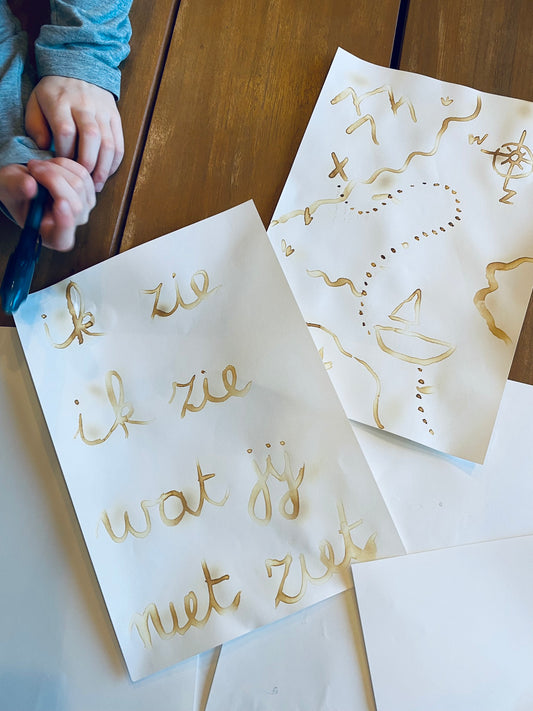 ik zie
ik zie
wat jij
niet ziet
X
W
N